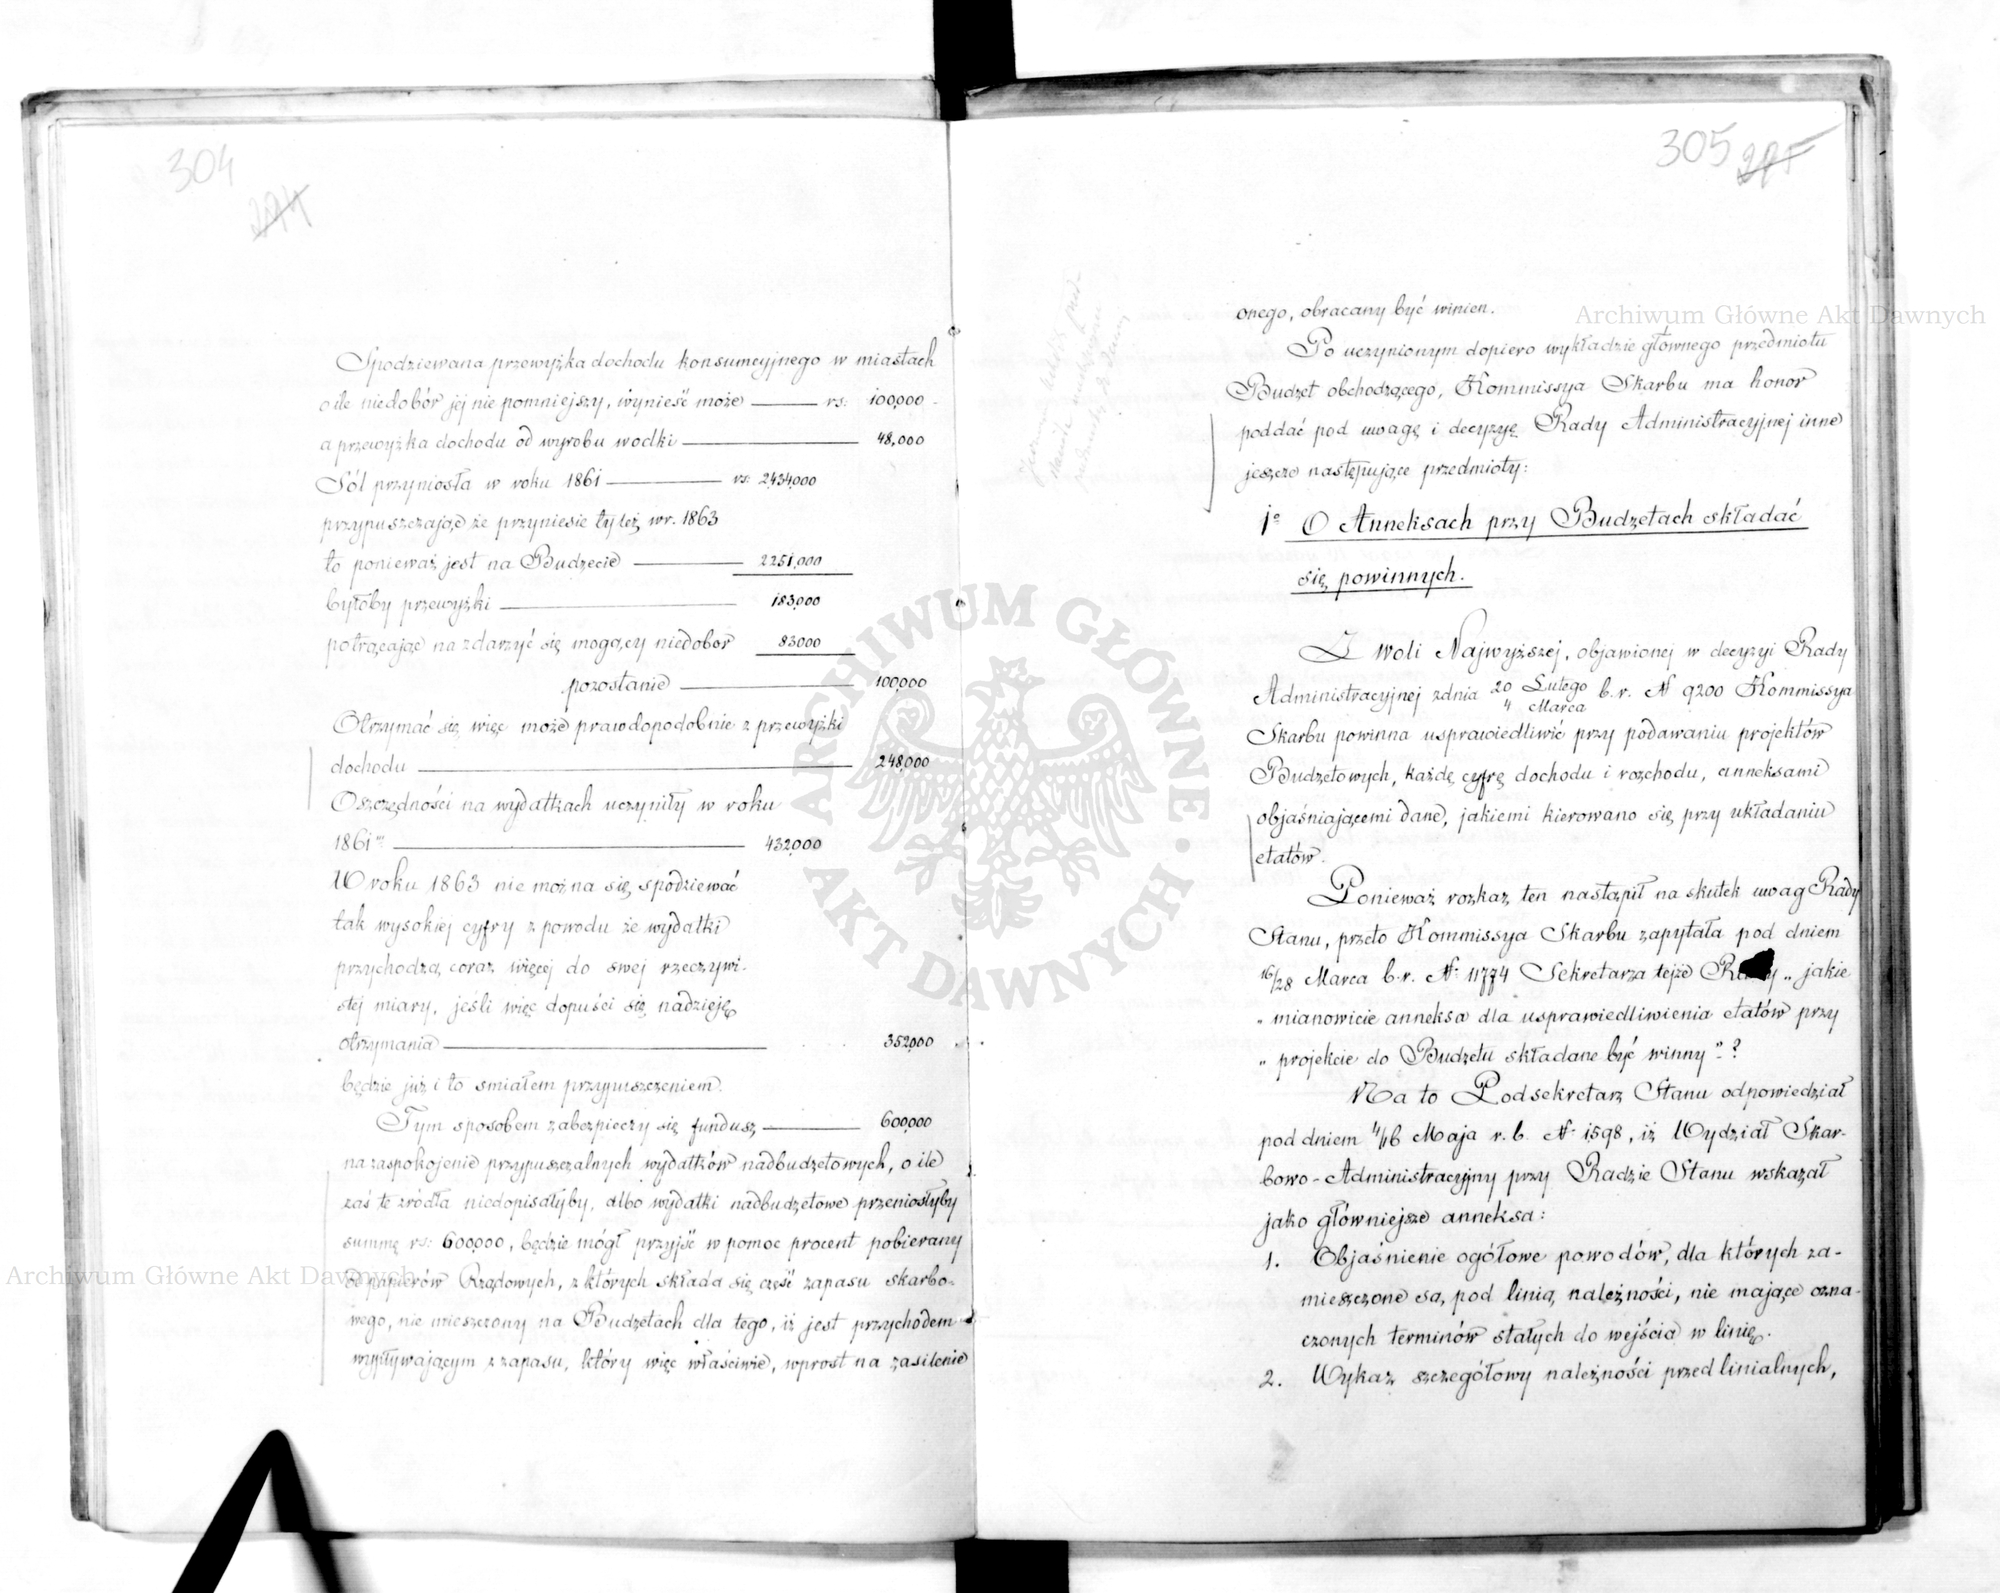 304
294
Spodziewana przewyżka dochodu konsumcyjnego w miastach
o ile niedobór jej nie pomniejszy, wynieść może rs: 100,000
a przewyżka dochodu od wyrobu wódki 48,000
Sól przyniosła w roku 1861 rs: 2,434,000
przypuszczając że przyniesie tyleż w r. 1863
to ponieważ jest na Budżecie 2251,000
byłoby przewyżki 183,000
potrącając na zdarzyć się mogący niedobór 83000
pozostanie 100,000
Otrzymać się więc może prawdopodobnie z przewyżki
dochodu 248,000
Oszczędności na wydatkach uczyniły w roku
1861 432,000
W roku 1863 nie można się spodziewać
tak wysokiej cyfry z powodu że wydatki
przychodzą coraz więcej do swej rzeczywi-
stej miary, jeśli więc dopuści się nadzieję
otrzymania 352,000
będzie już i to śmiałem przypuszczeniem.
Tym sposobem zabezpieczy się fundusz 600,000
na zaspokojenie przypuszczalnych wydatków nadbudżetowych, o ile
zaś te źródła niedopisałyby, albo wydatki nadbudżetowe przeniosłyby
summę rs: 600,000, będzie mógł przyjść w pomoc procent pobierany
od papierów Rządowych, z których składa się część zapasu skarbo-
wego, nie mieszczony na Budżetach dla tego, iż jest przychodem
wypływającym z zapasu, który więc właściwie, wprost na zasilenie
305
295
onego, obracany być winien.
Po uczynionym dopiero wykładzie głównego przedmiotu
Budżet obchodzącego, Kommissya Skarbu ma honor
poddać pod uwagę i decyzyę Rady Administracyjnej inne
jeszcze następujące przedmioty:
1º O Anneksach przy Budżetach składać
się powinnych.
Z woli Najwyższej, objawionej w decyzyi Rady
Administracyjnej z dnia 20 Lutego / 4 Marca b. r. № 9200 Kommissya
Skarbu powinna usprawiedliwić przy podawaniu projektów
Budżetowych, każdę cyfrę dochodu i rozchodu, anneksami
objaśniającemi dane, jakiemi kierowano się przy układaniu
etatów.
Ponieważ rozkaz ten nastąpił na skutek uwag Rady
Stanu, przeto Kommissya Skarbu zapytała pod dniem
16/28 Marca b. r. №: 11774 Sekretarza tejże Rady „jakie
„mianowicie anneksa dla usprawiedliwienia etatów przy
„projekcie do Budżetu składane być winny"?
Na to Podsekretarz Stanu odpowiedział
pod dniem 4/16 Maja r. b. №: 1598, iż Wydział Skar-
bowo-Administracyjny przy Radzie Stanu wskazał
jako główniejsze anneksa:
1. Objaśnienie ogółowe powodów, dla których za-
mieszczone są, pod linią należności, nie mające ozna-
czonych terminów stałych do wejścia w linię.
2. Wykaz szczegółowy należności przed linialnych,
Archiwum Główne Akt Dawnych
Archiwum Główne Akt Dawnych
ARCHIWUM GŁÓWNE AKT DAWNYCH